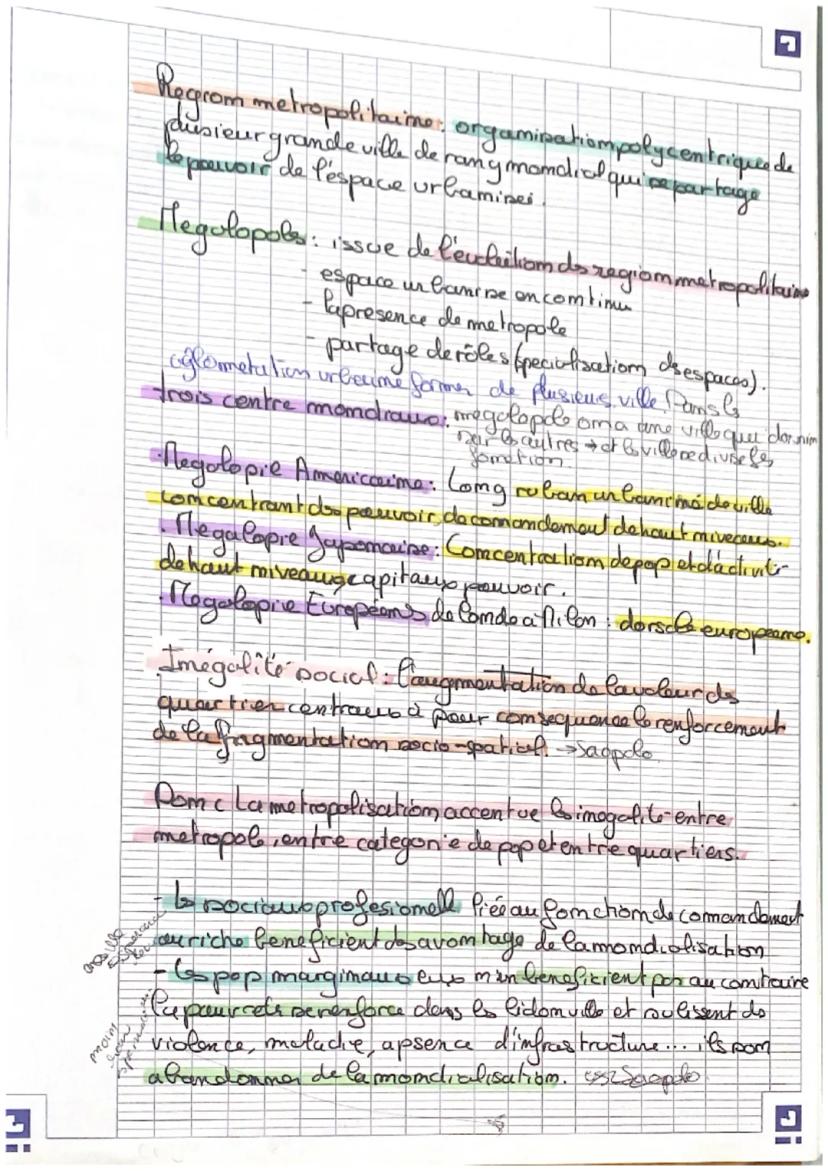 Regiom metropolitaine: orgamisation polycentrique de
plusieur grande ville de rang mondial qui se partage
le pouvoir de l'éspace urbaminsei.
Megalopols: issue de l'evolution ds region metropolitains
- espace urbanise en continu
- la presence de metropole
- partage de rôles (specialisation ds espaces).
aglometation urbaime former de plusieus ville. Dans ls
trois centre momdiaux: megalopole on a une ville qui domin
sur ls autres → et la ville redivise ses
fonction
. Megalopie Americaime: Long ruban urbanimé de ville
comcentrant ds pouvoir, de comandement de haut niveaux.
. Megalopie Japonaise: Comcentration de pop et d'activité
de haut niveaux, capitaux pouvoir.
. Megalopie Européens de Londe à Milan: dorsale europeane.
Imégalité social: L'augmentation de la valeur ds
quartier centraux à pour comsequence le renforcement
de la fragmentation socio-spatial. → Saopolo
Domc La metropolisation accentue ls inegalité entre
metropole, entre categorie de pop et entre quartiers.
- ls sociaux profesionelle liée au fonction de comandement
au riche beneficient ds avantage de la mondialisation
- Les pop marginaux eux n'en beneficient pas au contraire
la pauvreté se renforce dans les bidonville et subissent de
violence, maladie, apsence d'infrastructure... ils son
abandonner de la momdialisation. Saopolo